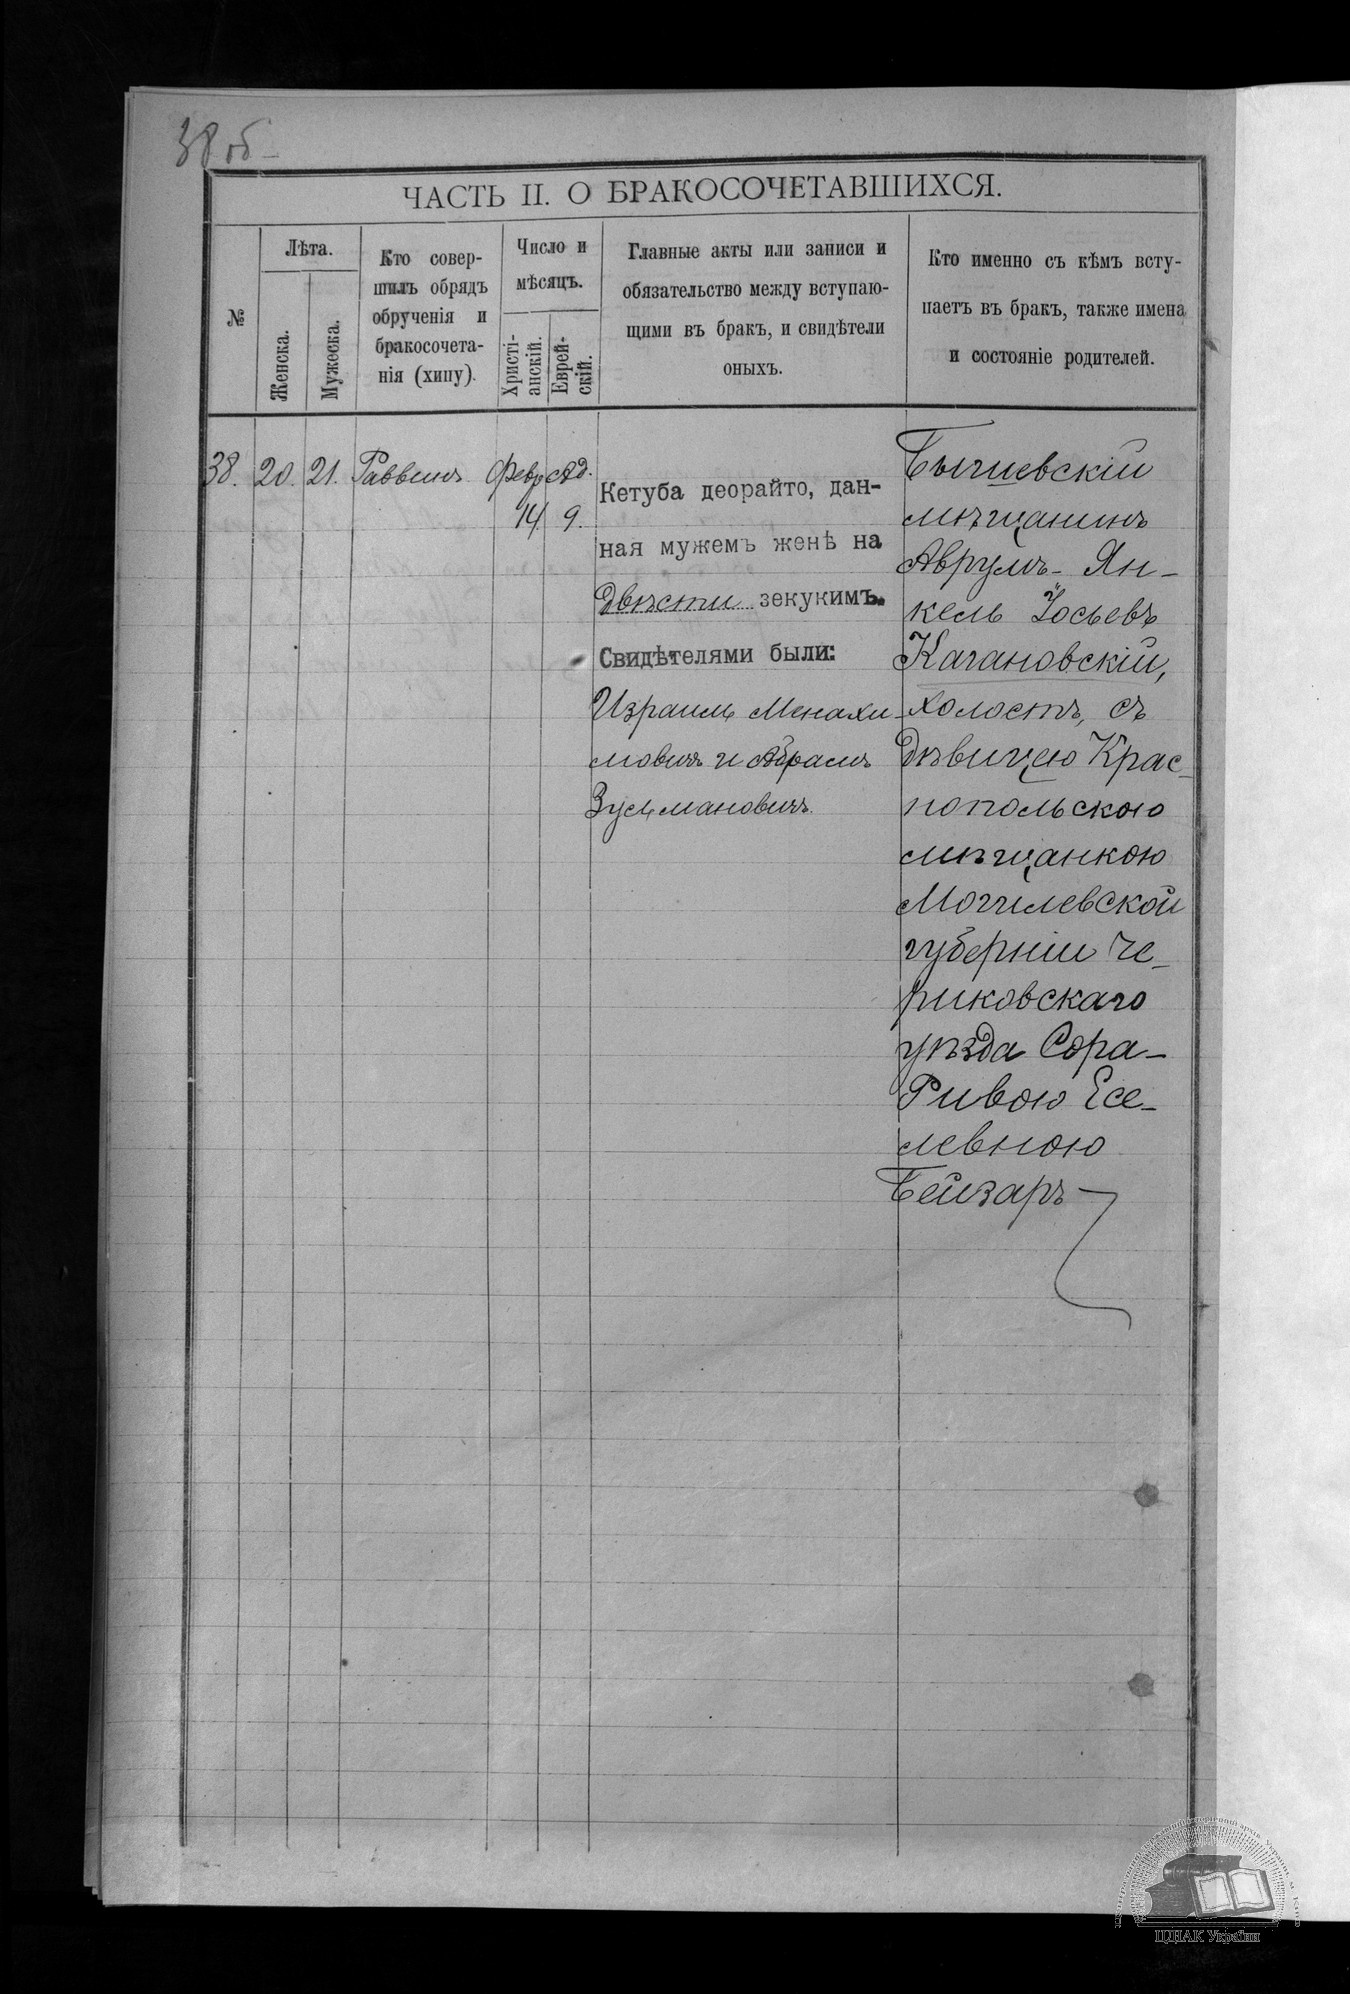 38 об
ЧАСТЬ II. О БРАКОСОЧЕТАВШИХСЯ.
№
Лѣта.
Женска.
Мужеска.
Кто совер-
шилъ обрядъ
обрученія и
бракосочета-
нія (хипу).
Число и
мѣсяцъ.
Христі-
анскій.
Еврей-
скій.
Главные акты или записи и
обязательство между вступаю-
щими въ бракъ, и свидѣтели
оныхъ.
Кто именно съ кѣмъ всту-
паетъ въ бракъ, также имена
и состояніе родителей.
38. 20. 21. Раввинъ Февр Ад.
14. 9.
Кетуба деорайто, дан-
ная мужемъ женѣ на
Двѣсти зекукимъ.
Свидѣтелями были:
Израиль Менахи-
мовичъ и Абрамъ
Зусьмановичъ.
мѣщанинъ
Аврумъ-Ян-
кель Іосьевъ
Кагановскій,
холостъ, съ
дѣвицею Крас-
нопольскою
мѣщанкою
Могилевской
губерніи Че-
риковскаго
уѣзда Сора-
Ривою Есе-
левною
Бейзаръ
ЦДІАК України